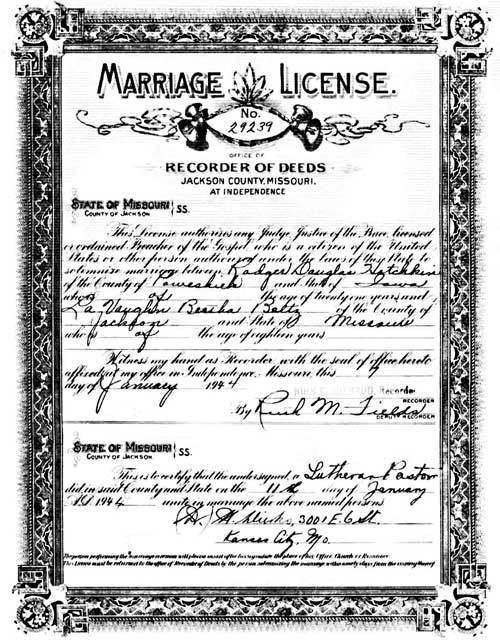 MARRIAGE LICENSE.
No.
29239
OFFICE OF
RECORDER OF DEEDS
JACKSON COUNTY, MISSOURI.
AT INDEPENDENCE
STATE OF MISSOURI
COUNTY OF JACKSON
SS.
This License authorizes any Judge, Justice of the Peace, licensed
or ordained Preacher of the Gospel who is a citizen of the United
States or other person authorized under the laws of this State to
solemnize marriage between Rodger Douglas Hotchkin
of the County of Poweshiek and State of Iowa
who is of the age of twenty one years and
La Vaughn Bertha Boltz of the County of
Jackson and State of Missouri
who is of the age of eighteen years
Witness my hand as Recorder, with the seal of office hereto
affixed at my office in Independence, Missouri, this
day of January 1944
Recorder
RECORDER
By Ruth M. Fields
DEPUTY RECORDER
STATE OF MISSOURI
COUNTY OF JACKSON
SS.
This is to certify that the undersigned, a Lutheran Pastor
did, in said County and State on the 11th day of January
A.D. 1944 unite in marriage the above named persons
3001 E. 6 St.
Kansas City, Mo.
This License must be returned to the office of Recorder of Deeds by the person solemnizing the marriage within ninety days from the issuing thereof